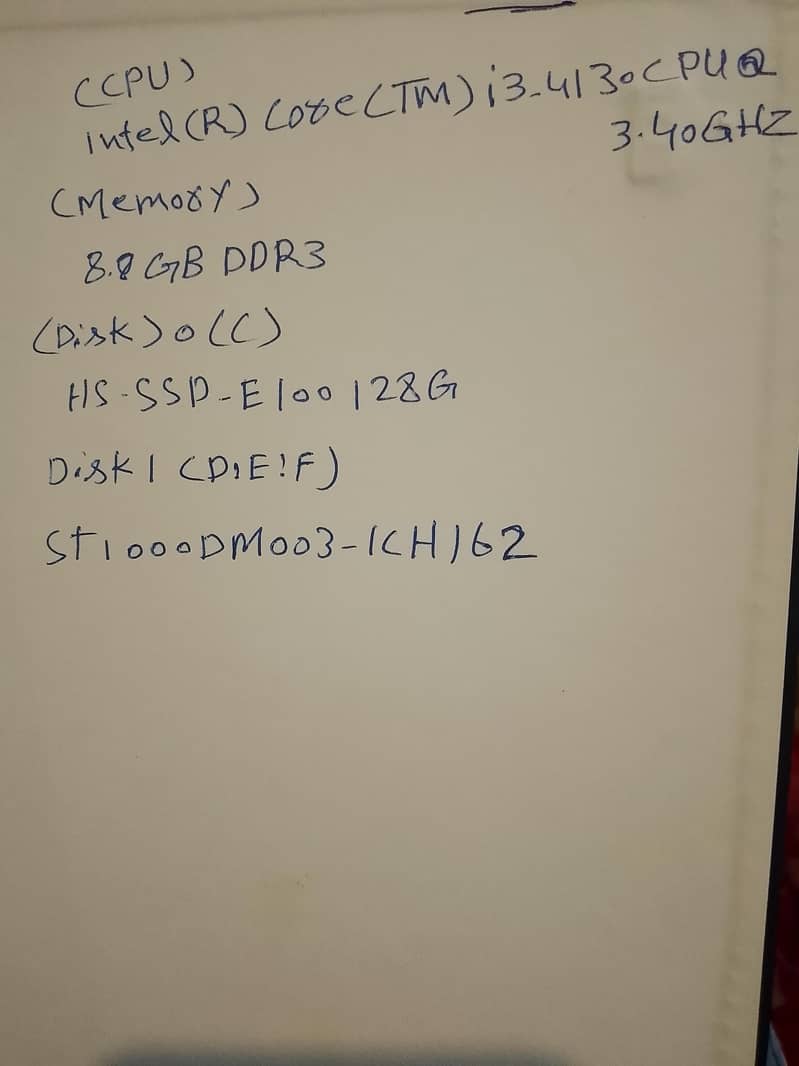 (CPU)
intel(R) Core(TM) i3-4130 CPU @
3.40GHZ
(Memory)
8.0 GB DDR3
(Disk) 0 (C)
HS-SSD-E100 128G
Disk 1 (D:E:F)
ST1000DM003-1CH162